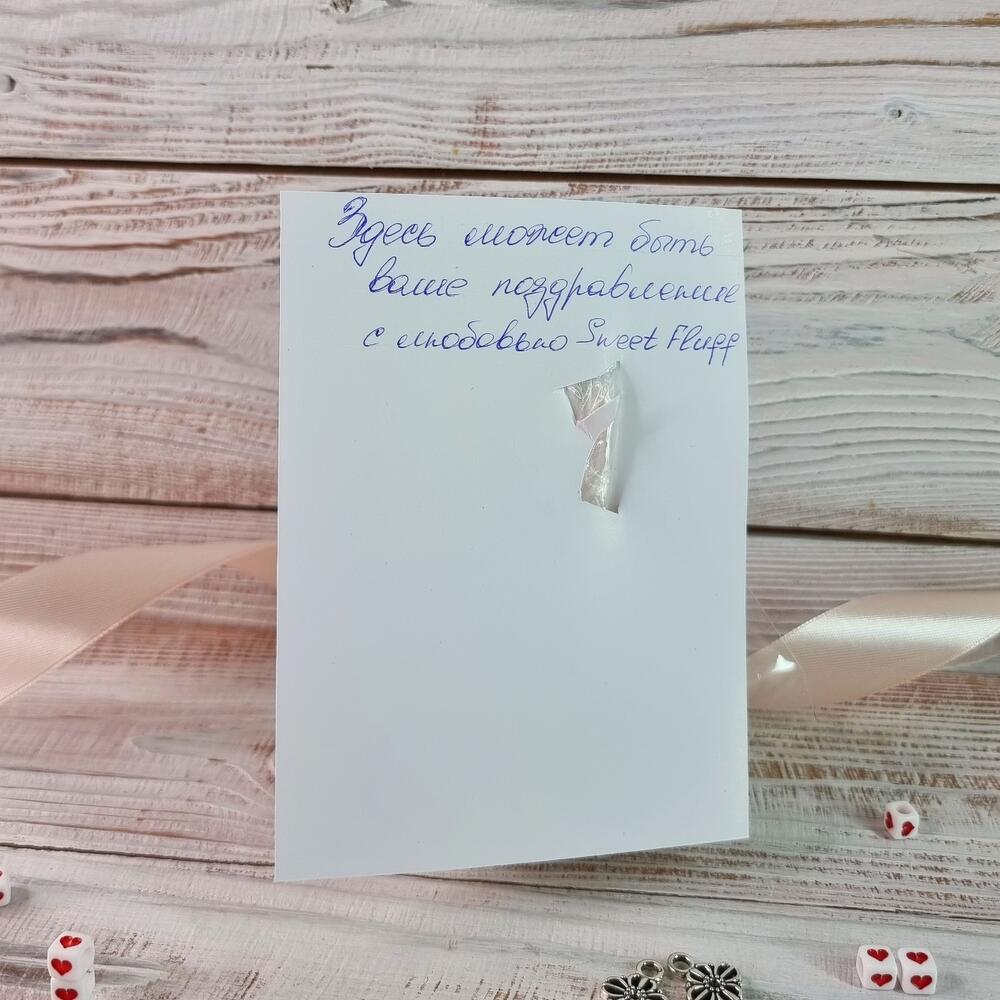 Здесь может быть
ваше поздравление
с любовью Sweet Fluff